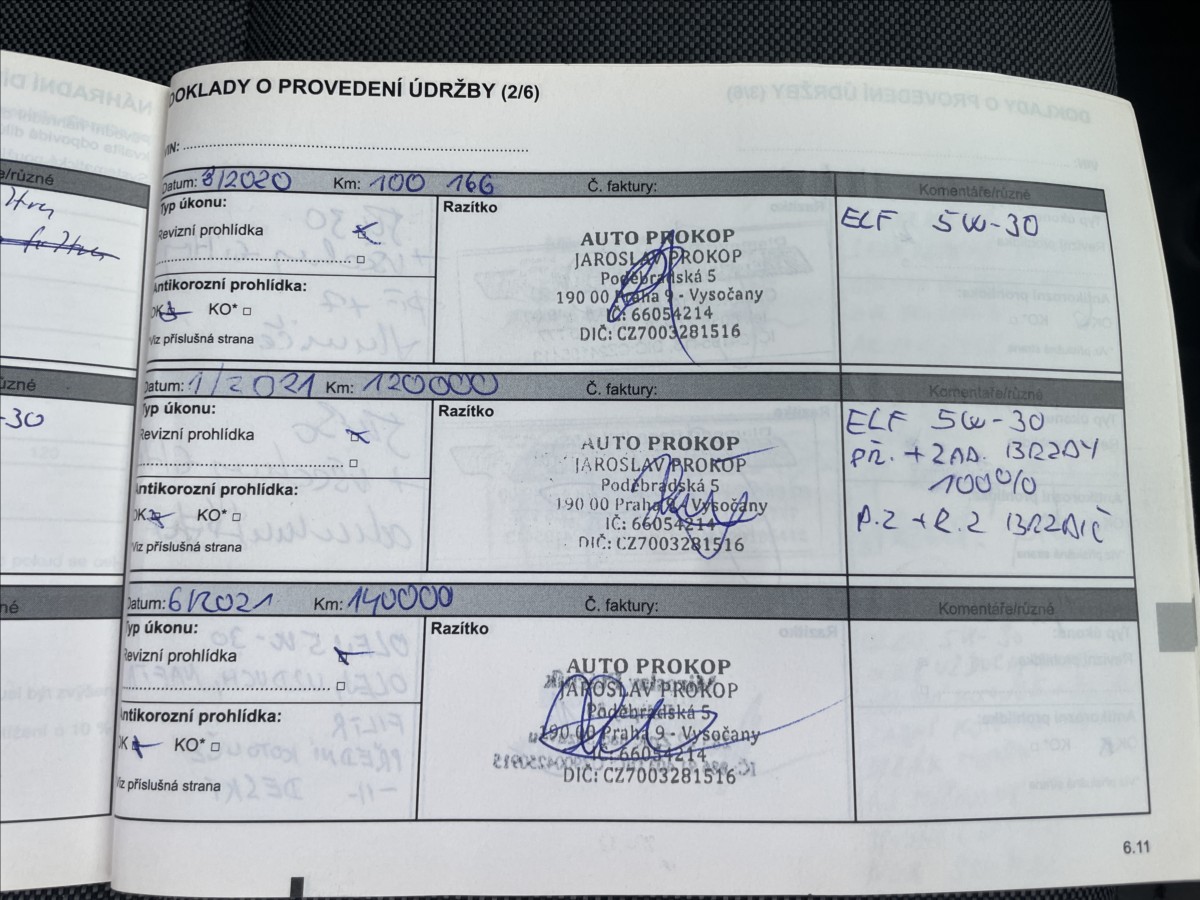 NÁHRADNÍ DÍ
e/různé
DOKLADY O PROVEDENÍ ÚDRŽBY (2/6)
VIN:
Datum: 8/2020 Km: 100 166 Č. faktury: Komentáře/různé
Typ úkonu:
Revizní prohlídka
Antikorozní prohlídka:
OK KO*
Viz příslušná strana
Razítko
AUTO PROKOP
JAROSLAV PROKOP
Poděbradská 5
190 00 Praha 9 - Vysočany
IČ: 66054214
DIČ: CZ7003281516
ELF 5W-30
různé
-30
Datum: 1/2021 Km: 120000 Č. faktury: Komentáře/různé
Typ úkonu:
Revizní prohlídka
Antikorozní prohlídka:
OK KO*
Viz příslušná strana
Razítko
AUTO PROKOP
JAROSLAV PROKOP
Poděbradská 5
190 00 Praha 9 - Vysočany
IČ: 66054214
DIČ: CZ7003281516
ELF 5W-30
PŘ. + ZAD. BRZDY
100%
P.Z + R.Z BRZDIČ
né
Datum: 6/2021 Km: 140000 Č. faktury: Komentáře/různé
Typ úkonu:
Revizní prohlídka
Antikorozní prohlídka:
OK KO*
Viz příslušná strana
Razítko
AUTO PROKOP
JAROSLAV PROKOP
Poděbradská 5
190 00 Praha 9 - Vysočany
IČ: 66054214
DIČ: CZ7003281516
6.11